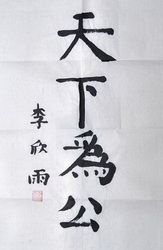 天下為公
李欣雨